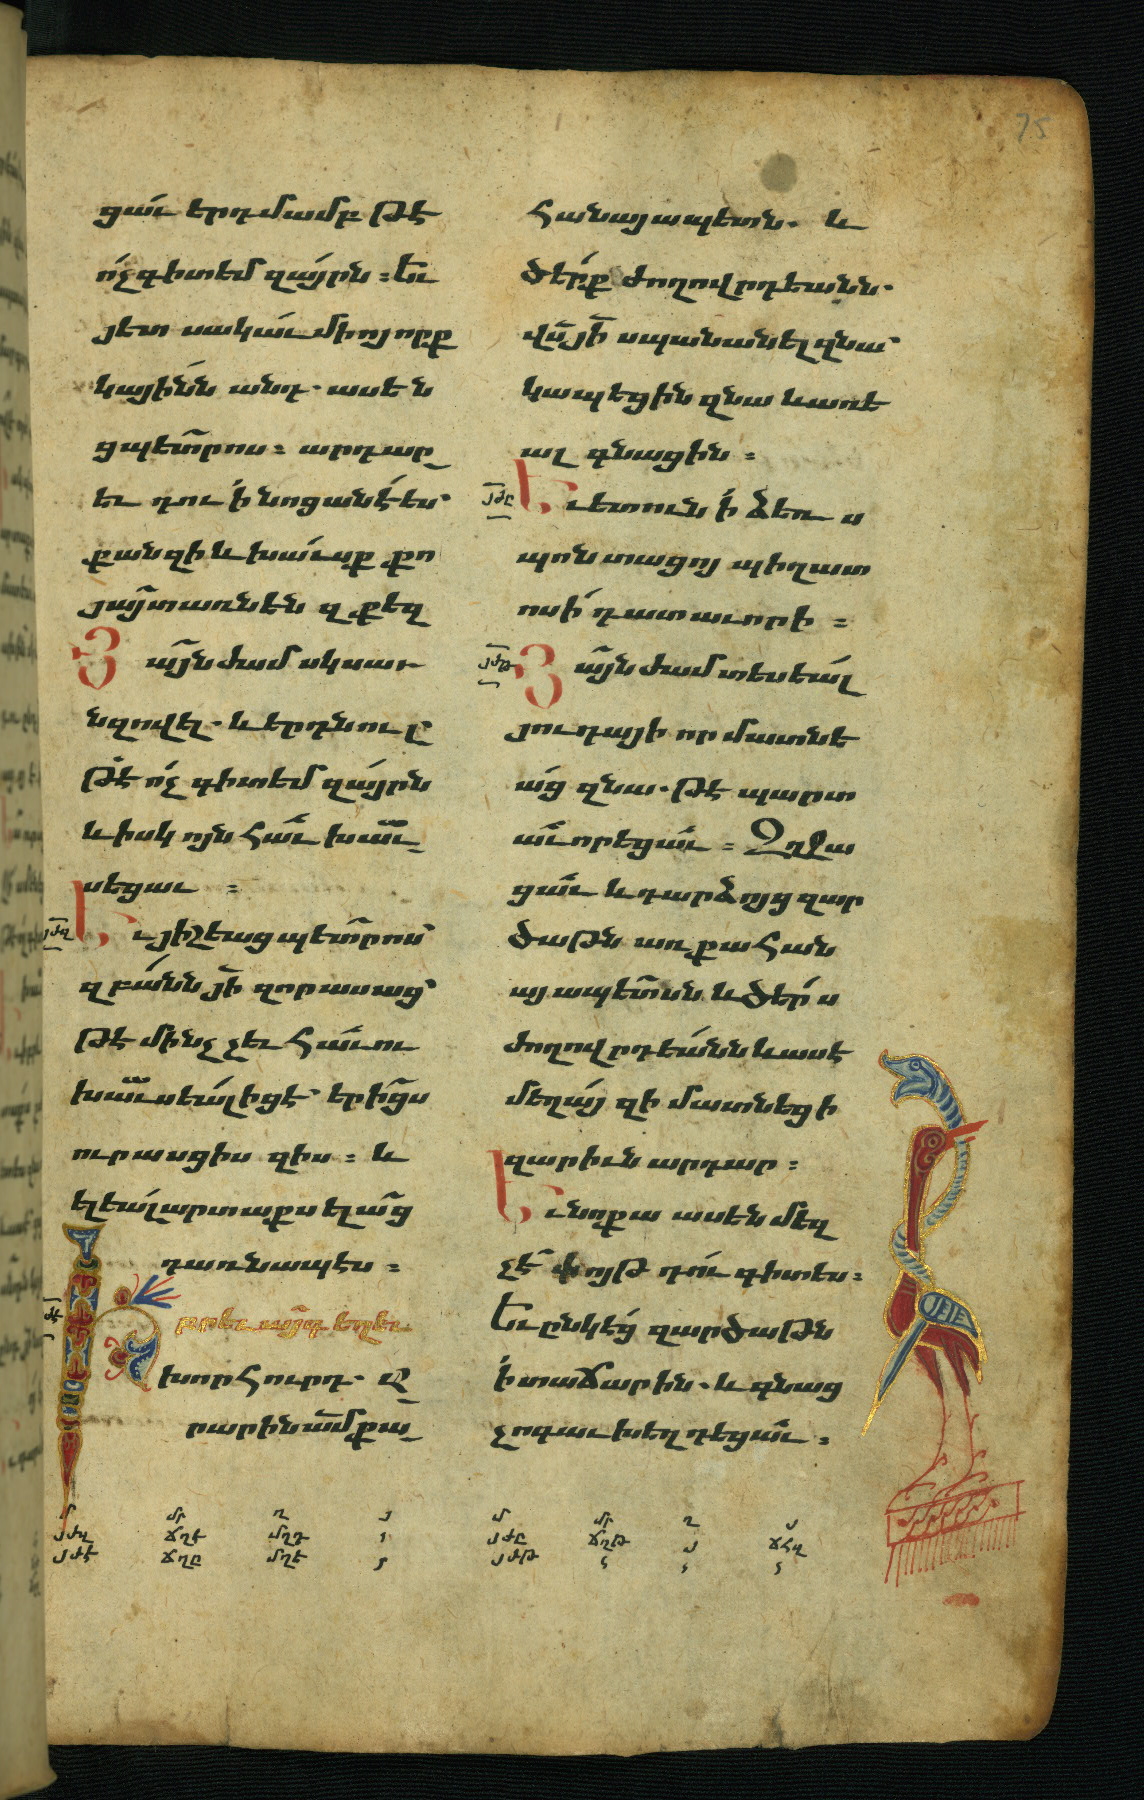 ցաւ երդմամբ թէ
ո՛չ գիտեմ զայրն ։ Եւ
յետ սակաւ միոյ որք
կայինն անդ · ասեն
ցպետրոս ։ արդար
եւ դու ի նոցանէ ես՝
քանզի և խաւսք քո
յայտ առնեն զքեզ
Յայնժամ սկսաւ
նզովել · և երդնուլ
թէ ո՛չ գիտեմ զայրն
և իսկոյն հաւ խաւ
սեցաւ ։
յժզ
Եւ յիշեաց պետրոս՝
զբանն յի զոր ասաց՝
թէ մինչչեւ հաւու
խաւսեալ իցէ՝ երիցս
ուրասցիս զիս ։ և
ելեալ արտաքս ելաց
դառնապես ։
ժէ
Իբրեւ այգ եղեւ
խորհուրդ · ի
րարին ամ քա
հանայապետն · և
ծերք ժողովրդեանն ·
վս յի սպանանել զնա՝
կապեցին զնա և առե
ալ գնացին ։
յժը
Ետուն ի ձեռս
պոնտացոյ պիղատ
ոսի դատաւորի ։
յժթ
Յայնժամ տեսեալ
յուդայի որ մատնե
աց զնա · թէ պարտ
աւորեցաւ ։ Զղջա
ցաւ և դարձոյց զար
ծաթն առ քահան
այապետսն և ծերս
ժողովրդեանն և ասէ
մեղայ զի մատնեցի
զարիւն արդար ։
Եւ նոքա ասեն մեզ
չէ փոյթ դու գիտես ։
Եւ ընկէց զարծաթն
ի տաճարին · և գնաց
չոգաւ խեղդեցաւ ։
մ մր ղ յ մ մր ղ յ
յժզ ճղէ մղդ յժը ճղթ յ ճհզ
յժէ ճղը մղե յժթ
75